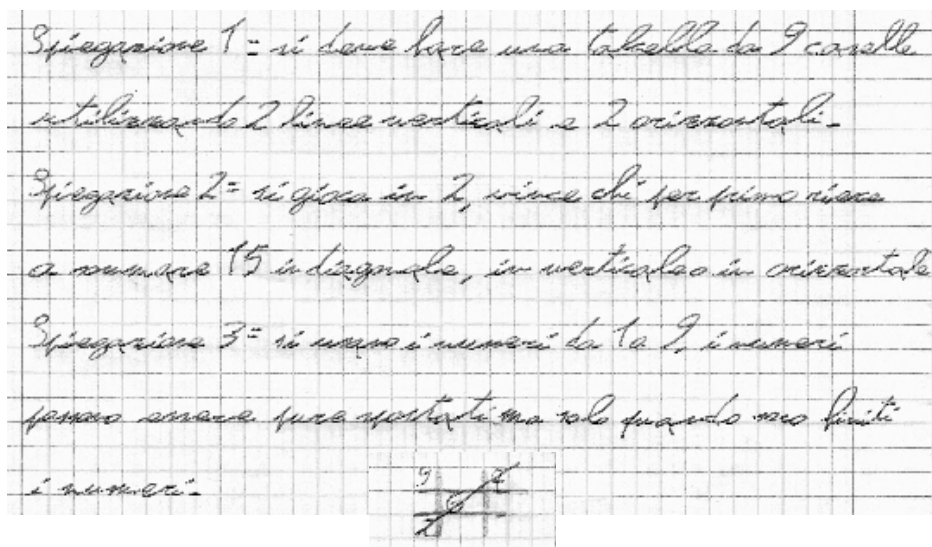 Spiegazione 1= si deve fare una tabella da 9 caselle
utilizzando 2 linee verticali e 2 orizzontali.
Spiegazione 2= si gioca in 2, vince chi per primo riesce
a sommare 15 in diagonale, in verticale o in orizzontale
Spiegazione 3= si usano i numeri da 1 a 9, i numeri
possono essere pure spostati ma solo quando sono finiti
i numeri.
9